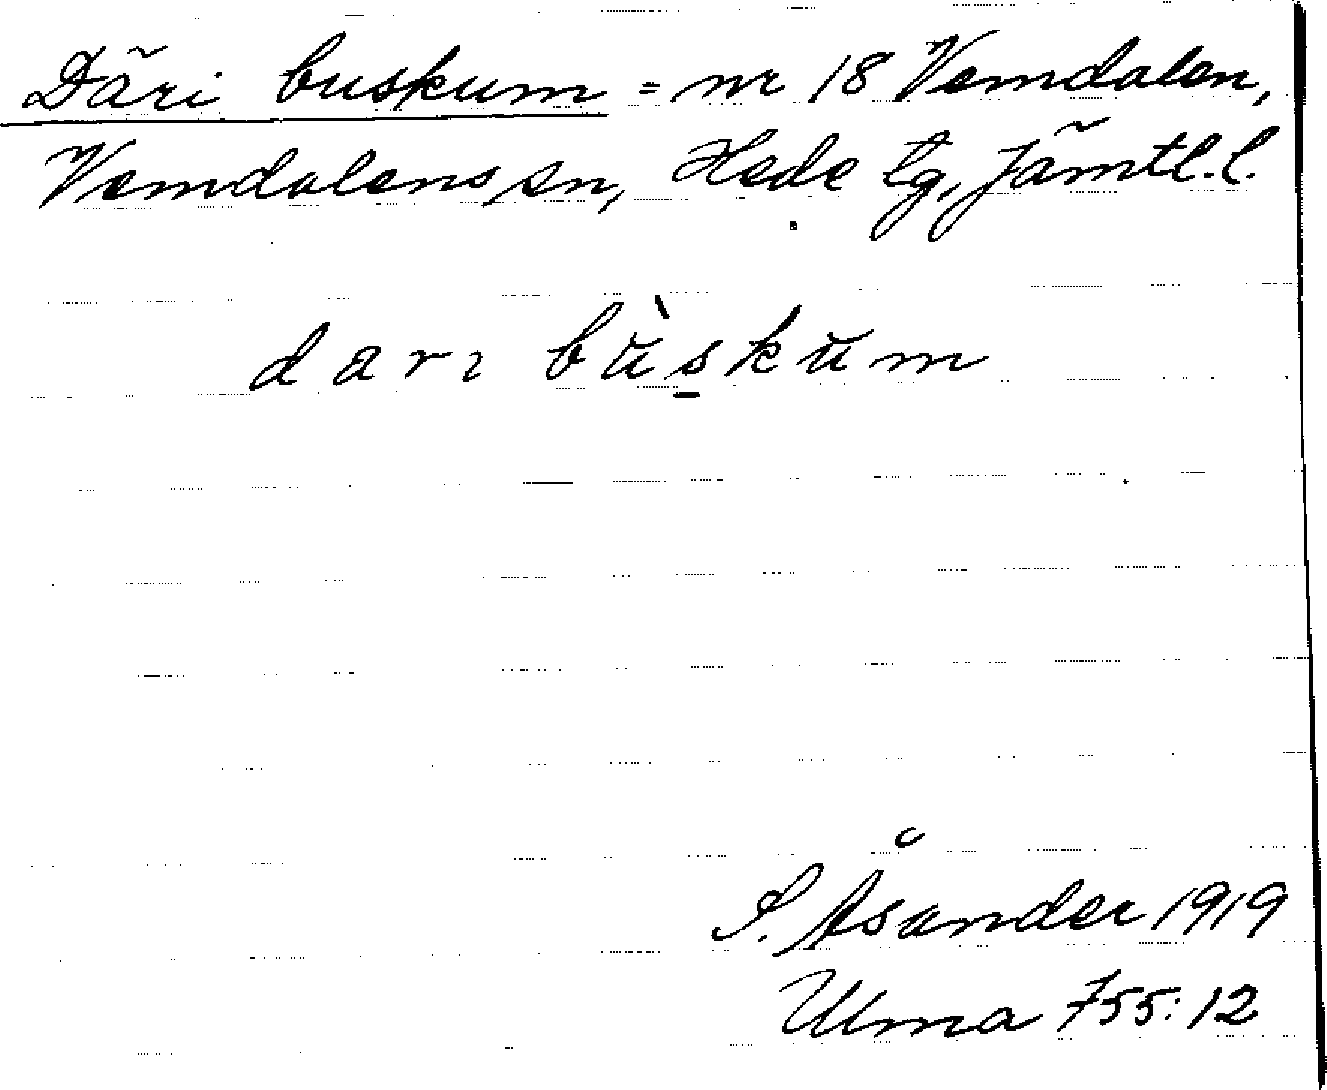 Däri buskum = nr 18 Vemdalen,
Vemdalens sn, Hede tg, Jämtl.l.
dari bùskum
S. Åsander 1919
Ulma 755:12